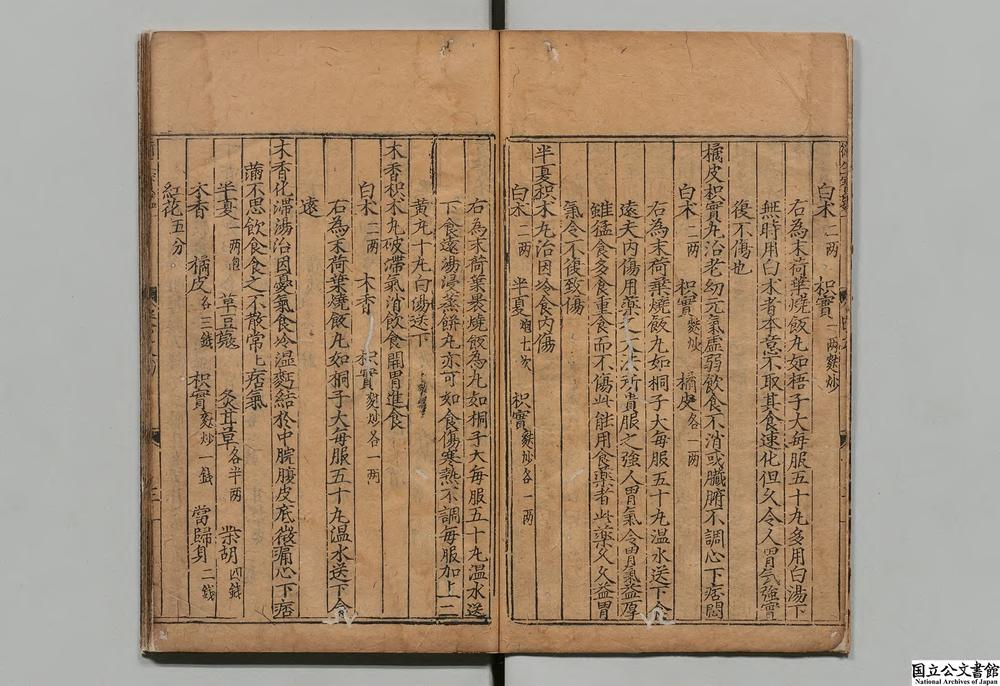 白朮二兩 枳實一兩麩炒
右為末荷葉燒飯丸如梧子大每服五十丸多用白湯下
無時用白朮者本意不取其食速化但久令人胃氣強實
後不傷也
橘皮枳實丸治老幼元氣虛弱飲食不消或臟腑不調心下痞悶
白朮二兩 枳實麩炒 橘皮各一兩
右為末荷葉燒飯丸如桐子大每服五十丸温水送下食
遠夫內傷用藥之大法所貴服之強人胃氣令胃氣益厚
雖猛食多食重食而不傷此能用食藥者此藥久久益胃
氣令不復致傷
半夏枳朮丸治因冷食內傷
白朮二兩 半夏炮七次 枳實麩炒各一兩
右為末荷葉裹燒飯為丸如桐子大每服五十丸温水送
下食遠湯浸蒸餅丸亦可如食傷寒熱不調每服加上二
黄丸十丸白湯送下
木香枳朮丸破滯氣消飲食開胃進食
白朮二兩 木香 枳實麩炒各一兩
右為末荷葉燒飯丸如桐子大每服五十丸温水送下食
遠
木香化滯湯治因憂氣食冷湿麪結於中脘腹皮底微痛心下痞
滿不思飲食食之不散常常痞氣
半夏一兩 草豆蔻 炙甘草各半兩 柴胡四錢
木香 橘皮各三錢 枳實麩炒一錢 當歸身二錢
紅花五分
国立公文書館
National Archives of Japan